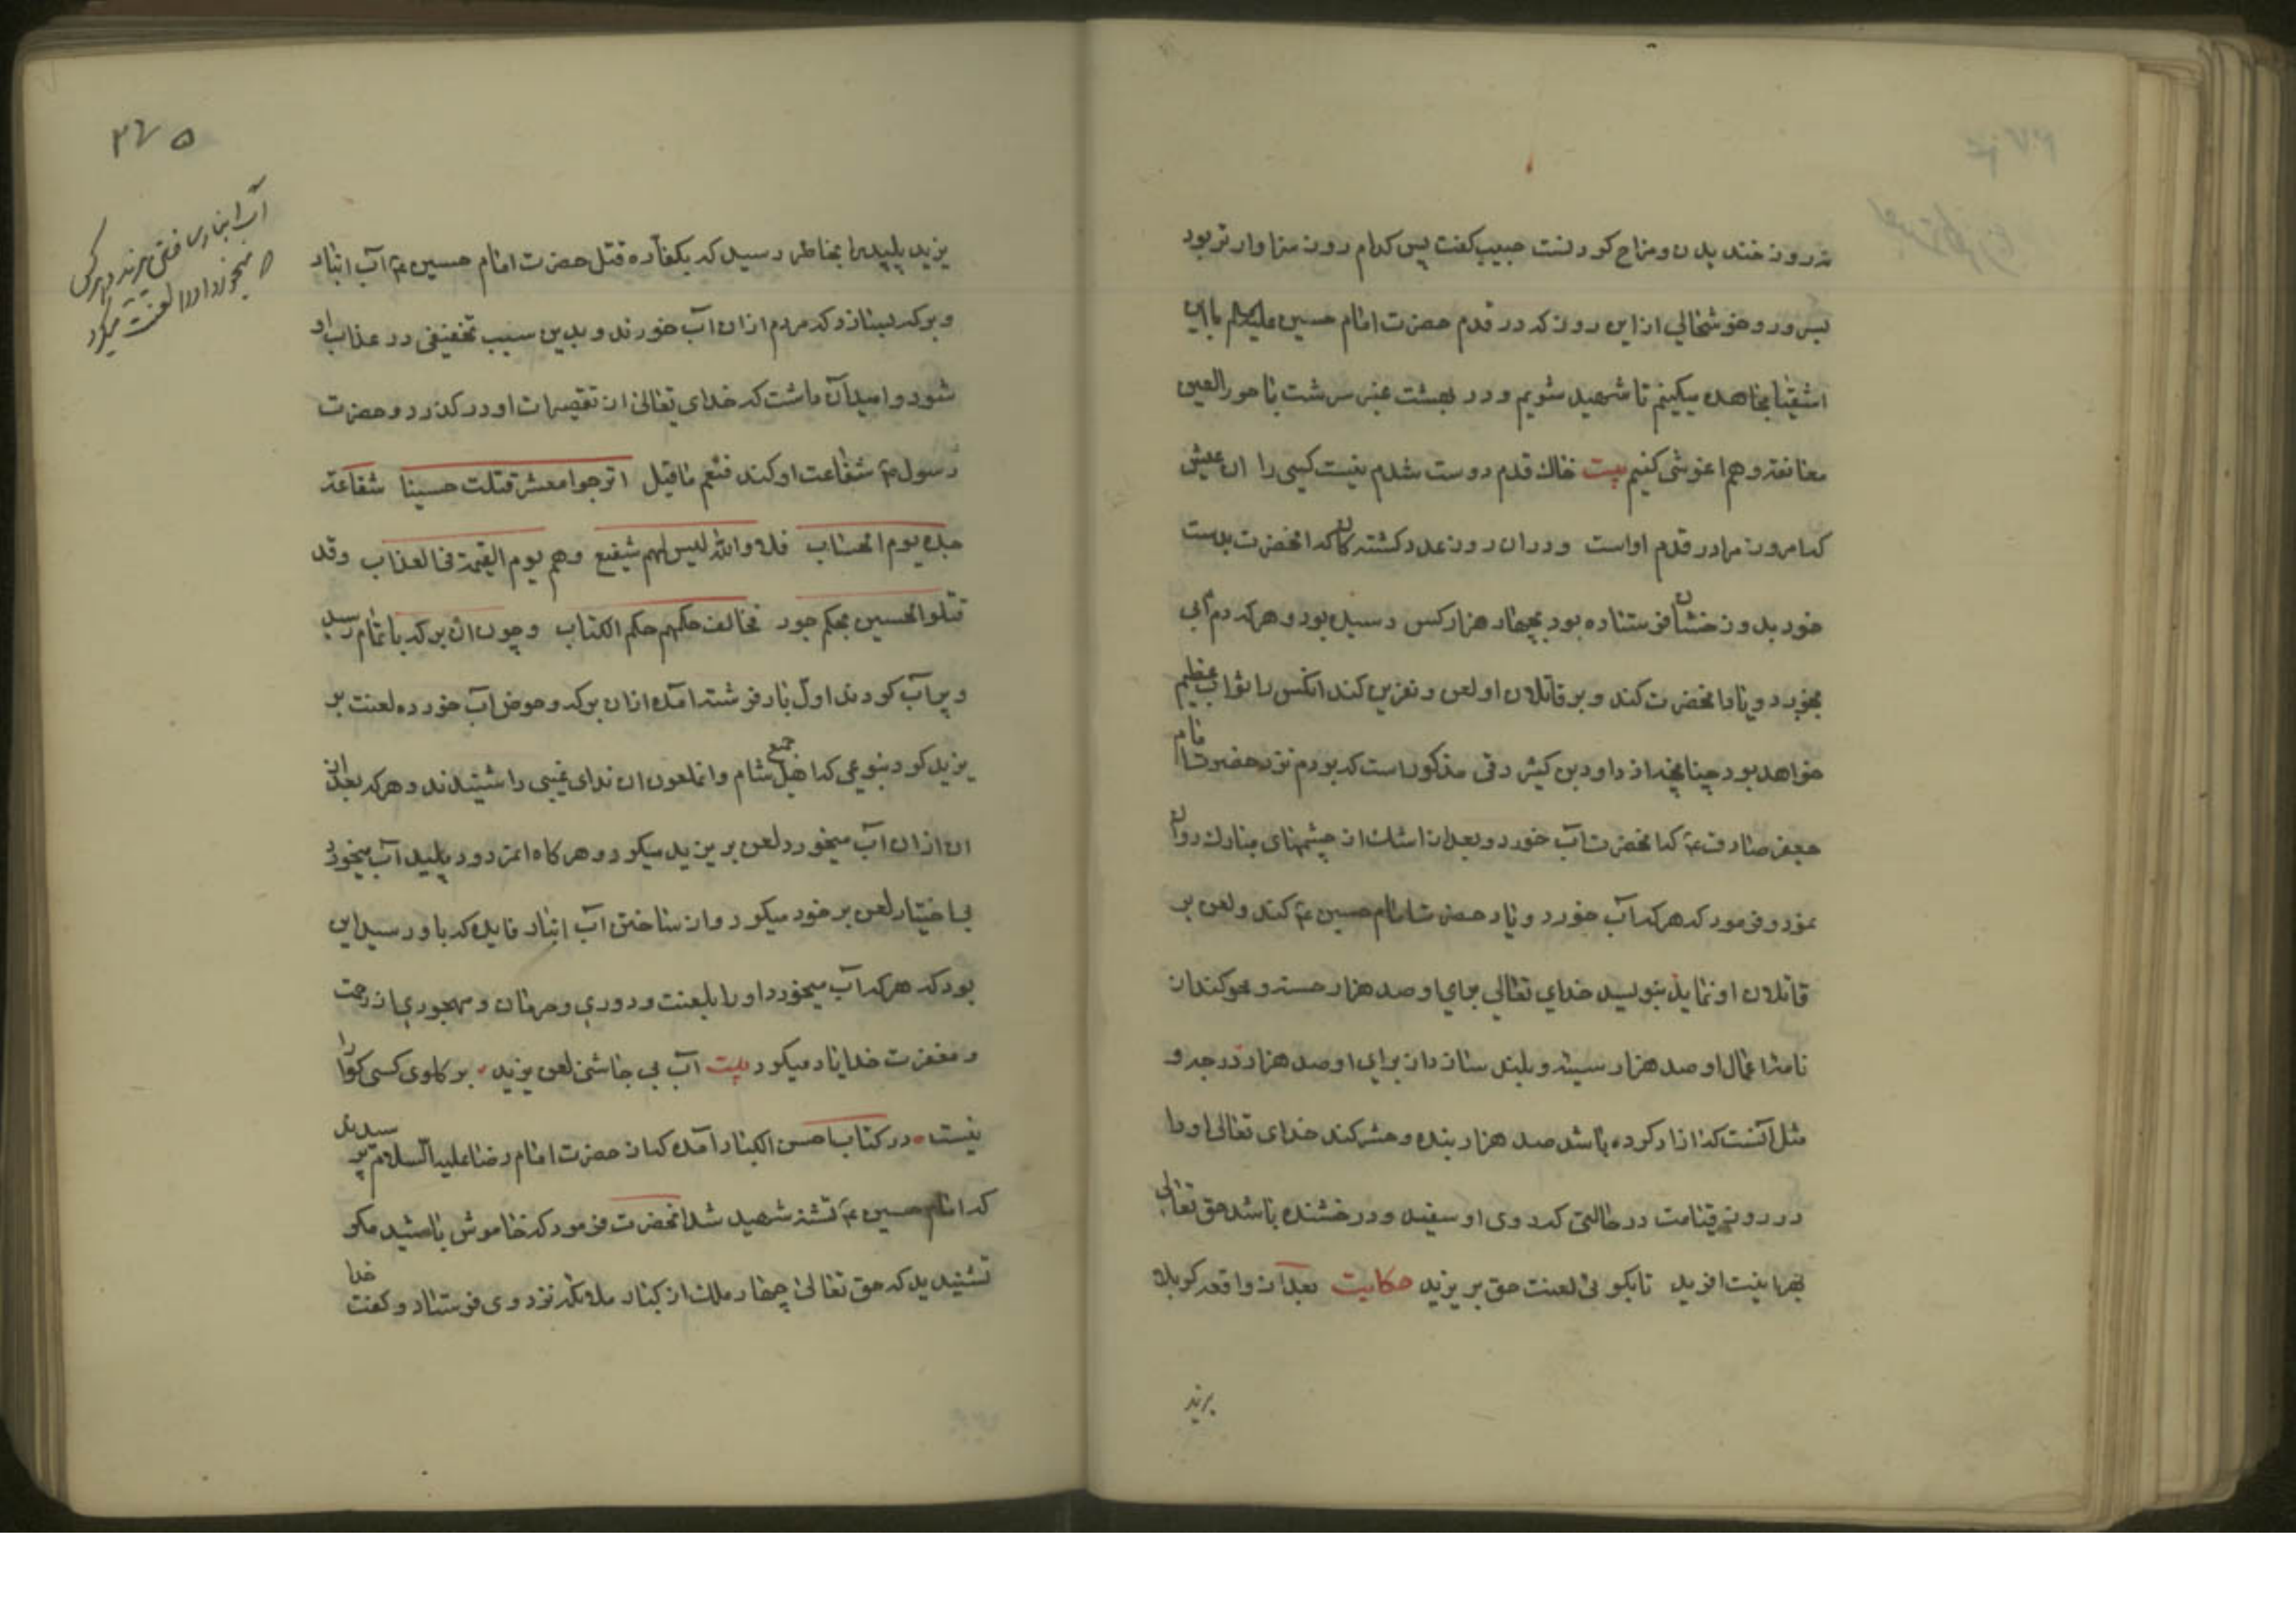 نه روز خندیدن و مزاح کردنست حبیب کفت پس کدام روز سزاوارتر بود
بسرور و خوشحالی از این روز که در قدم حضرت امام حسین علیه السلام با این
اشقیا مجاهده میکنیم تا شهید شویم و در بهشت عنبر سرشت با حور العین
معانقه و هم اغوشی کنیم بیت خاک قدم دوست شدم نیست کسی را ان عیش
که امروز مرا در قدم اواست و در ان روز عدد کشته کان که انحضرت بدست
خود بدوزخشان فرستاده بود بچهار هزار کس رسیده بود و هر که دم ابی
بخورد و یاد انحضرت کند و بر قاتلان او لعن و نفرین کند انکس را ثواب عظیم
خواهد بود چنانچه از داود بن کثیر رقی مذکور است که بودم نزد حضرت امام
جعفر صادق ع که انحضرت آب خورد و بعد از ان اشک از چشمهای مبارک روان
نمود و فرمود که هر که آب خورد و یاد حضرت امام حسین ع کند و لعن بر
قاتلان او نماید بنویسد خدای تعالی برای او صد هزار حسنه و محو کند از
نامه اعمال او صد هزار سیئه و بلند سازد از برای او صد هزار درجه و
مثل آنست که ازاد کرده باشد صد هزار بنده و حشر کند خدای تعالی او را
در روز قیامت در حالتی که روی او سفید و درخشنده باشد حق تعالی
بهر اینیت افرید تا بکوئی لعنت حق بر یزید حکایت بعد از واقعه کربلا
یزید
۳۷۵
آب انبار ساختن یزید و هر کس
میخورد او را لعنت میکرد
یزید پلید را بخاطر رسید که بکفاره قتل حضرت امام حسین ع آب انبار
و برکه بسازد که مردم از ان آب خورند و بدین سبب تخفیفی در عذاب او
شود و امید آن داشت که خدای تعالی از تقصیرات او در کذرد و حضرت
رسول ع شفاعت او کند فنعم ما قیل اترجوا معشر قتلت حسینا شفاعة
جده یوم الحساب فلا والله لیس لهم شفیع وهم یوم القیمة فی العذاب وقد
قتلوا الحسین بحکم جور مخالف حکمهم حکم الکتاب و چون ان برکه باتمام رسید
و پر آب کردند اول بار فرشته آمده از ان برکه و حوض آب خورده لعنت بر
یزید کرد بنوعی که جمیع اهل شام و انملعون ان ندای غیبی را شنیدند و هر که بعد از
ان از ان آب میخورد لعن بر یزید میکرد و هر کاه انمردود پلید آب میخورد
بی اختیار لعن بر خود میکرد و از ساختن آب انبار فایده که باو رسید این
بود که هر که آب میخورد او را بلعنت و دوری و حرمان و مهجوری از رحمت
و مغفرت خدا یاد میکرد بیت آب بی چاشنی لعن یزید بر کلوی کسی کوارا
نیست در کتاب احسن الکبار آمده که از حضرت امام رضا علیه السلام پرسیدند
که امام حسین ع تشنه شهید شد انحضرت فرمود که خاموش باشید مکر
نشنیدید که حق تعالی چهار ملک از کبار ملائکه نزد وی فرستاد و کفت خدا